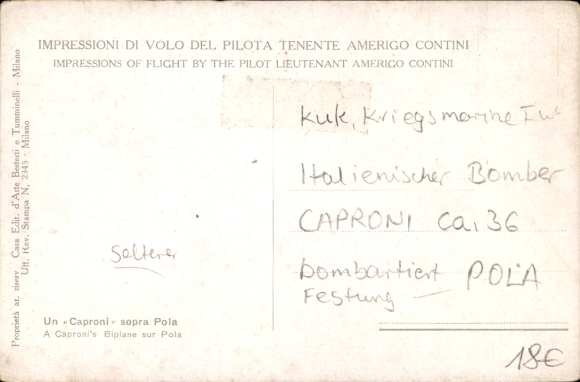 IMPRESSIONI DI VOLO DEL PILOTA TENENTE AMERIGO CONTINI
IMPRESSIONS OF FLIGHT BY THE PILOT LIEUTENANT AMERIGO CONTINI
kuk. Kriegsmarine I WK
Italienischer Bomber
CAPRONI Ca. 36
bombartiert POLA
Festung —
Seltener
Un «Caproni» sopra Pola
A Caproni's Biplane sur Pola
18€
Proprietà ar. riserv. Casa Edit. d'Arte Bestetti e Tumminelli - Milano
Uff. Rev. Stampa N. 2345 - Milano